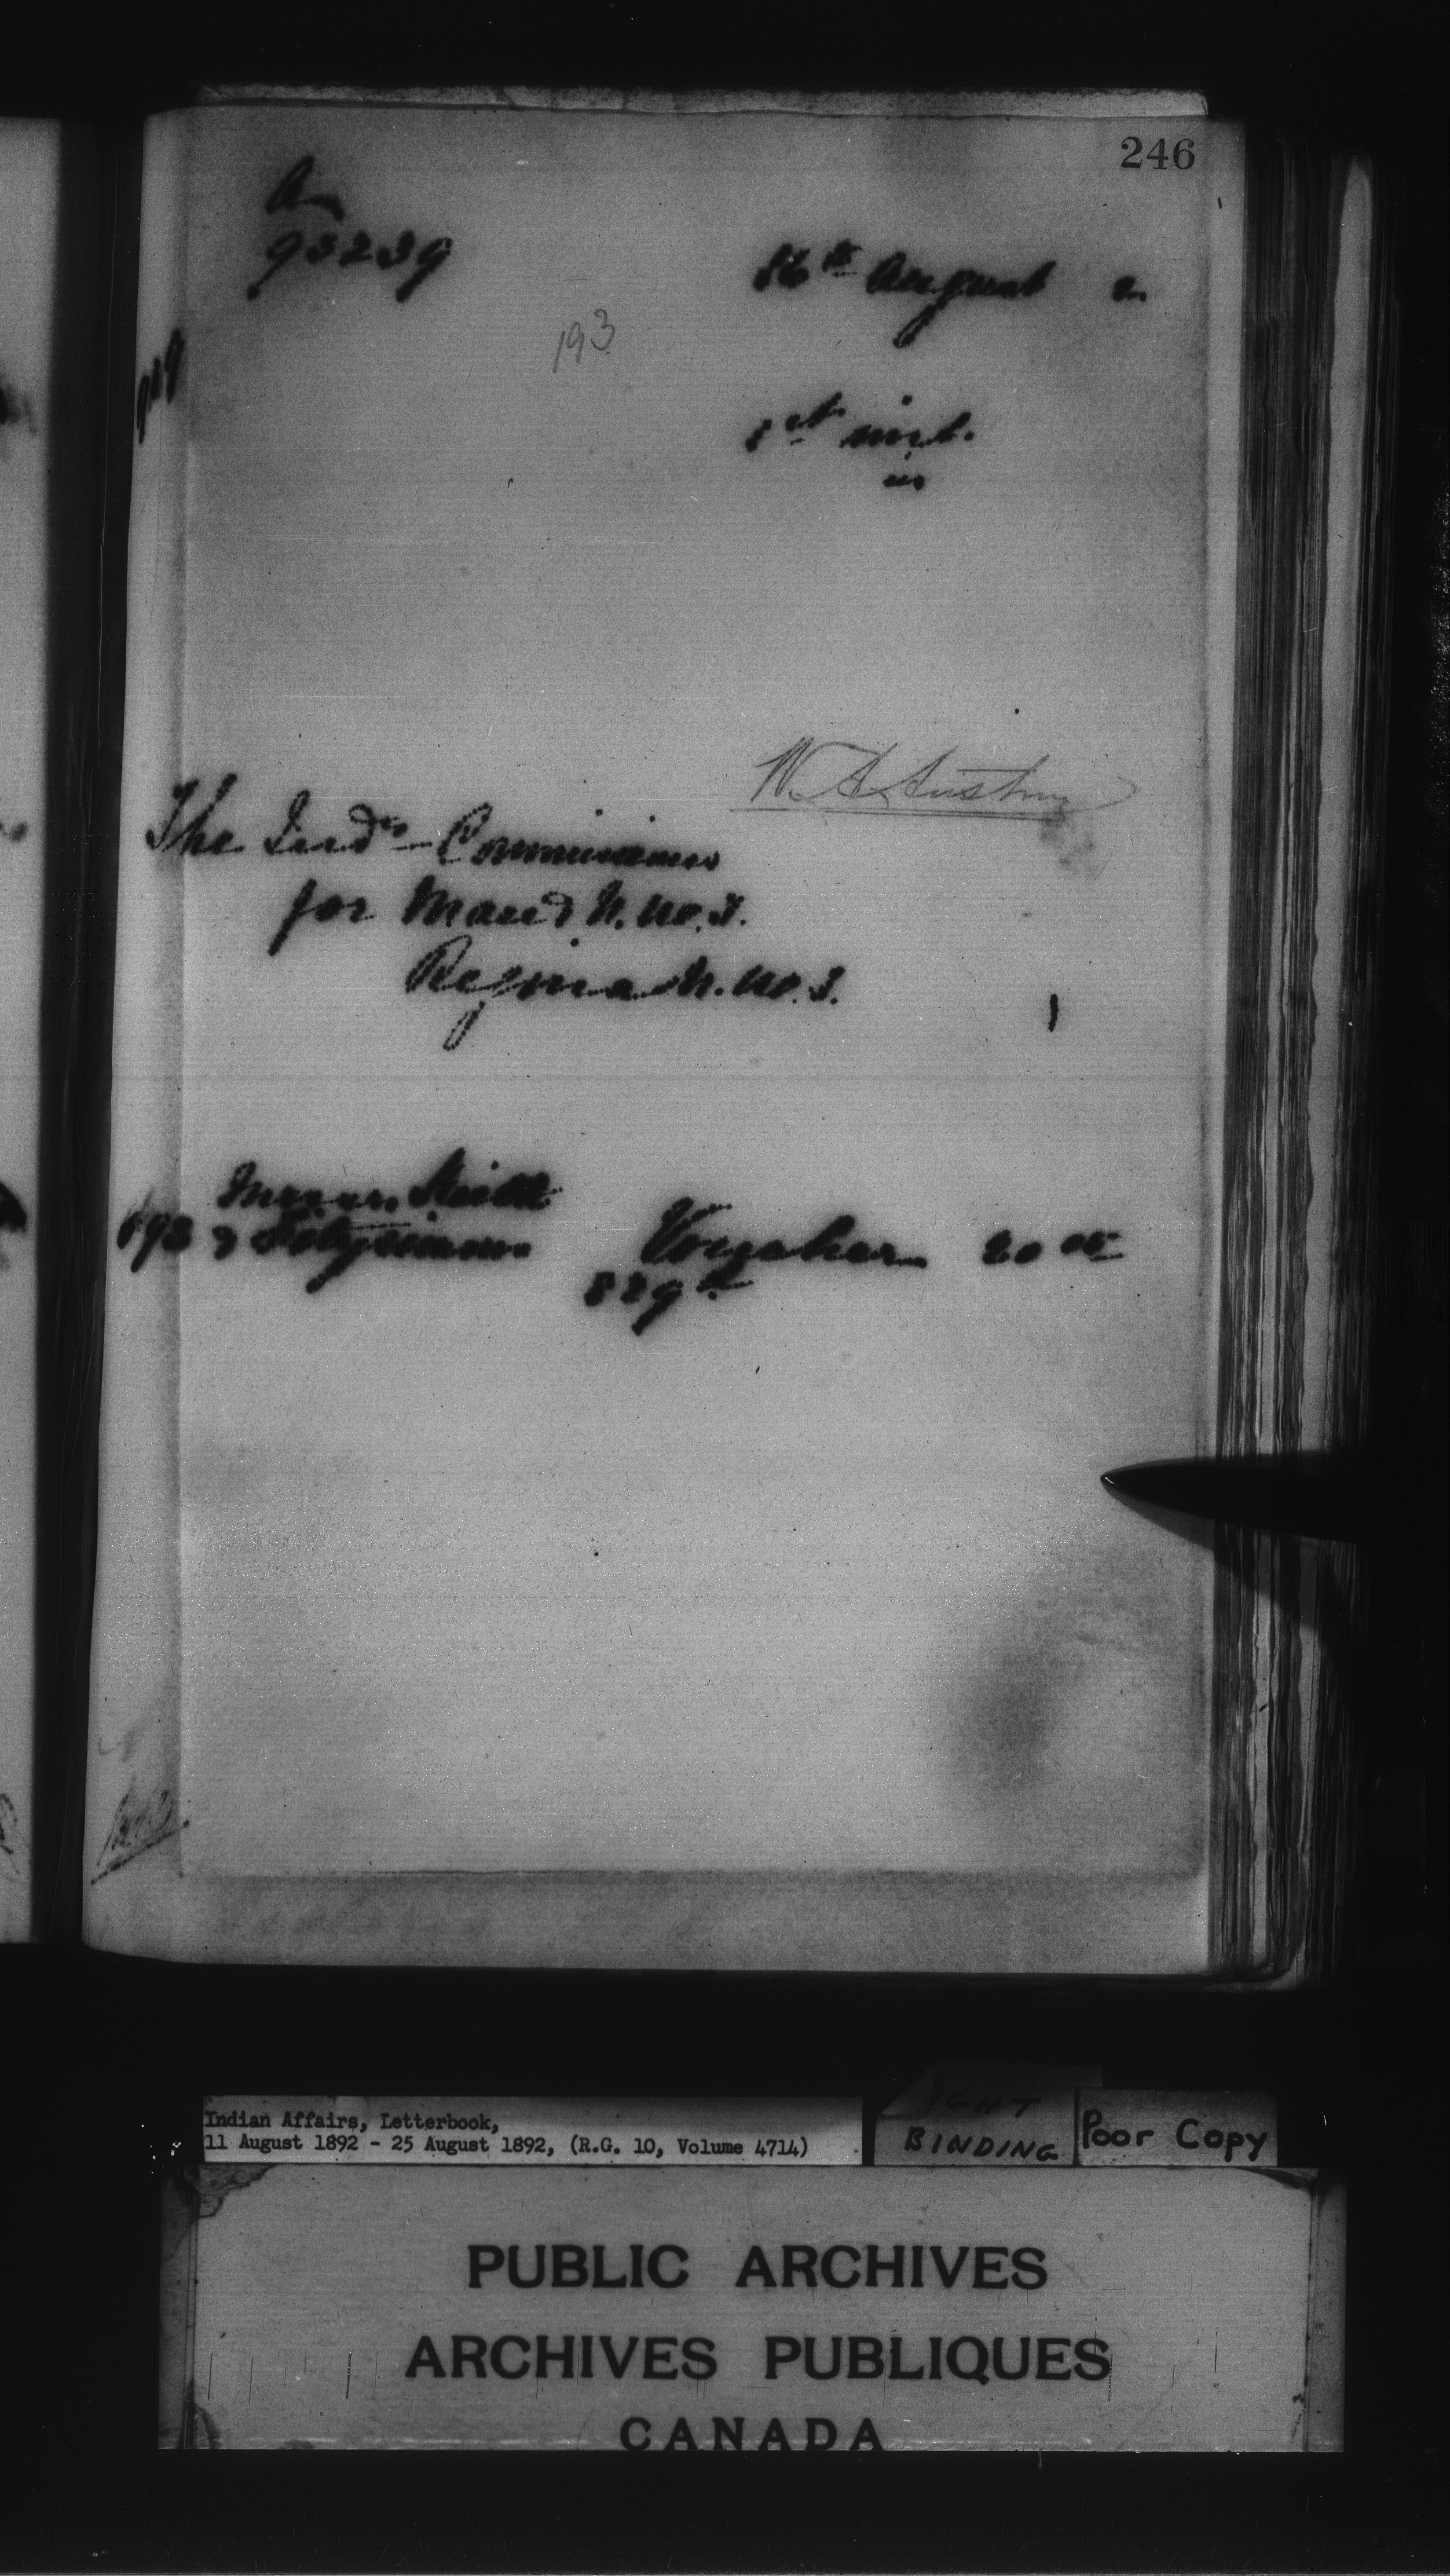 246
A
93239
16th August 2
193
1st inst.
W A Austin
The Indn Commissioner
for Man & N.W.T.
Regina N.W.T.
Messrs.
193 & Fitzsimmons Voucher 20 00
829
Indian Affairs, Letterbook,
11 August 1892 - 25 August 1892, (R.G. 10, Volume 4714)
BINDING
Poor Copy
PUBLIC ARCHIVES
ARCHIVES PUBLIQUES
CANADA